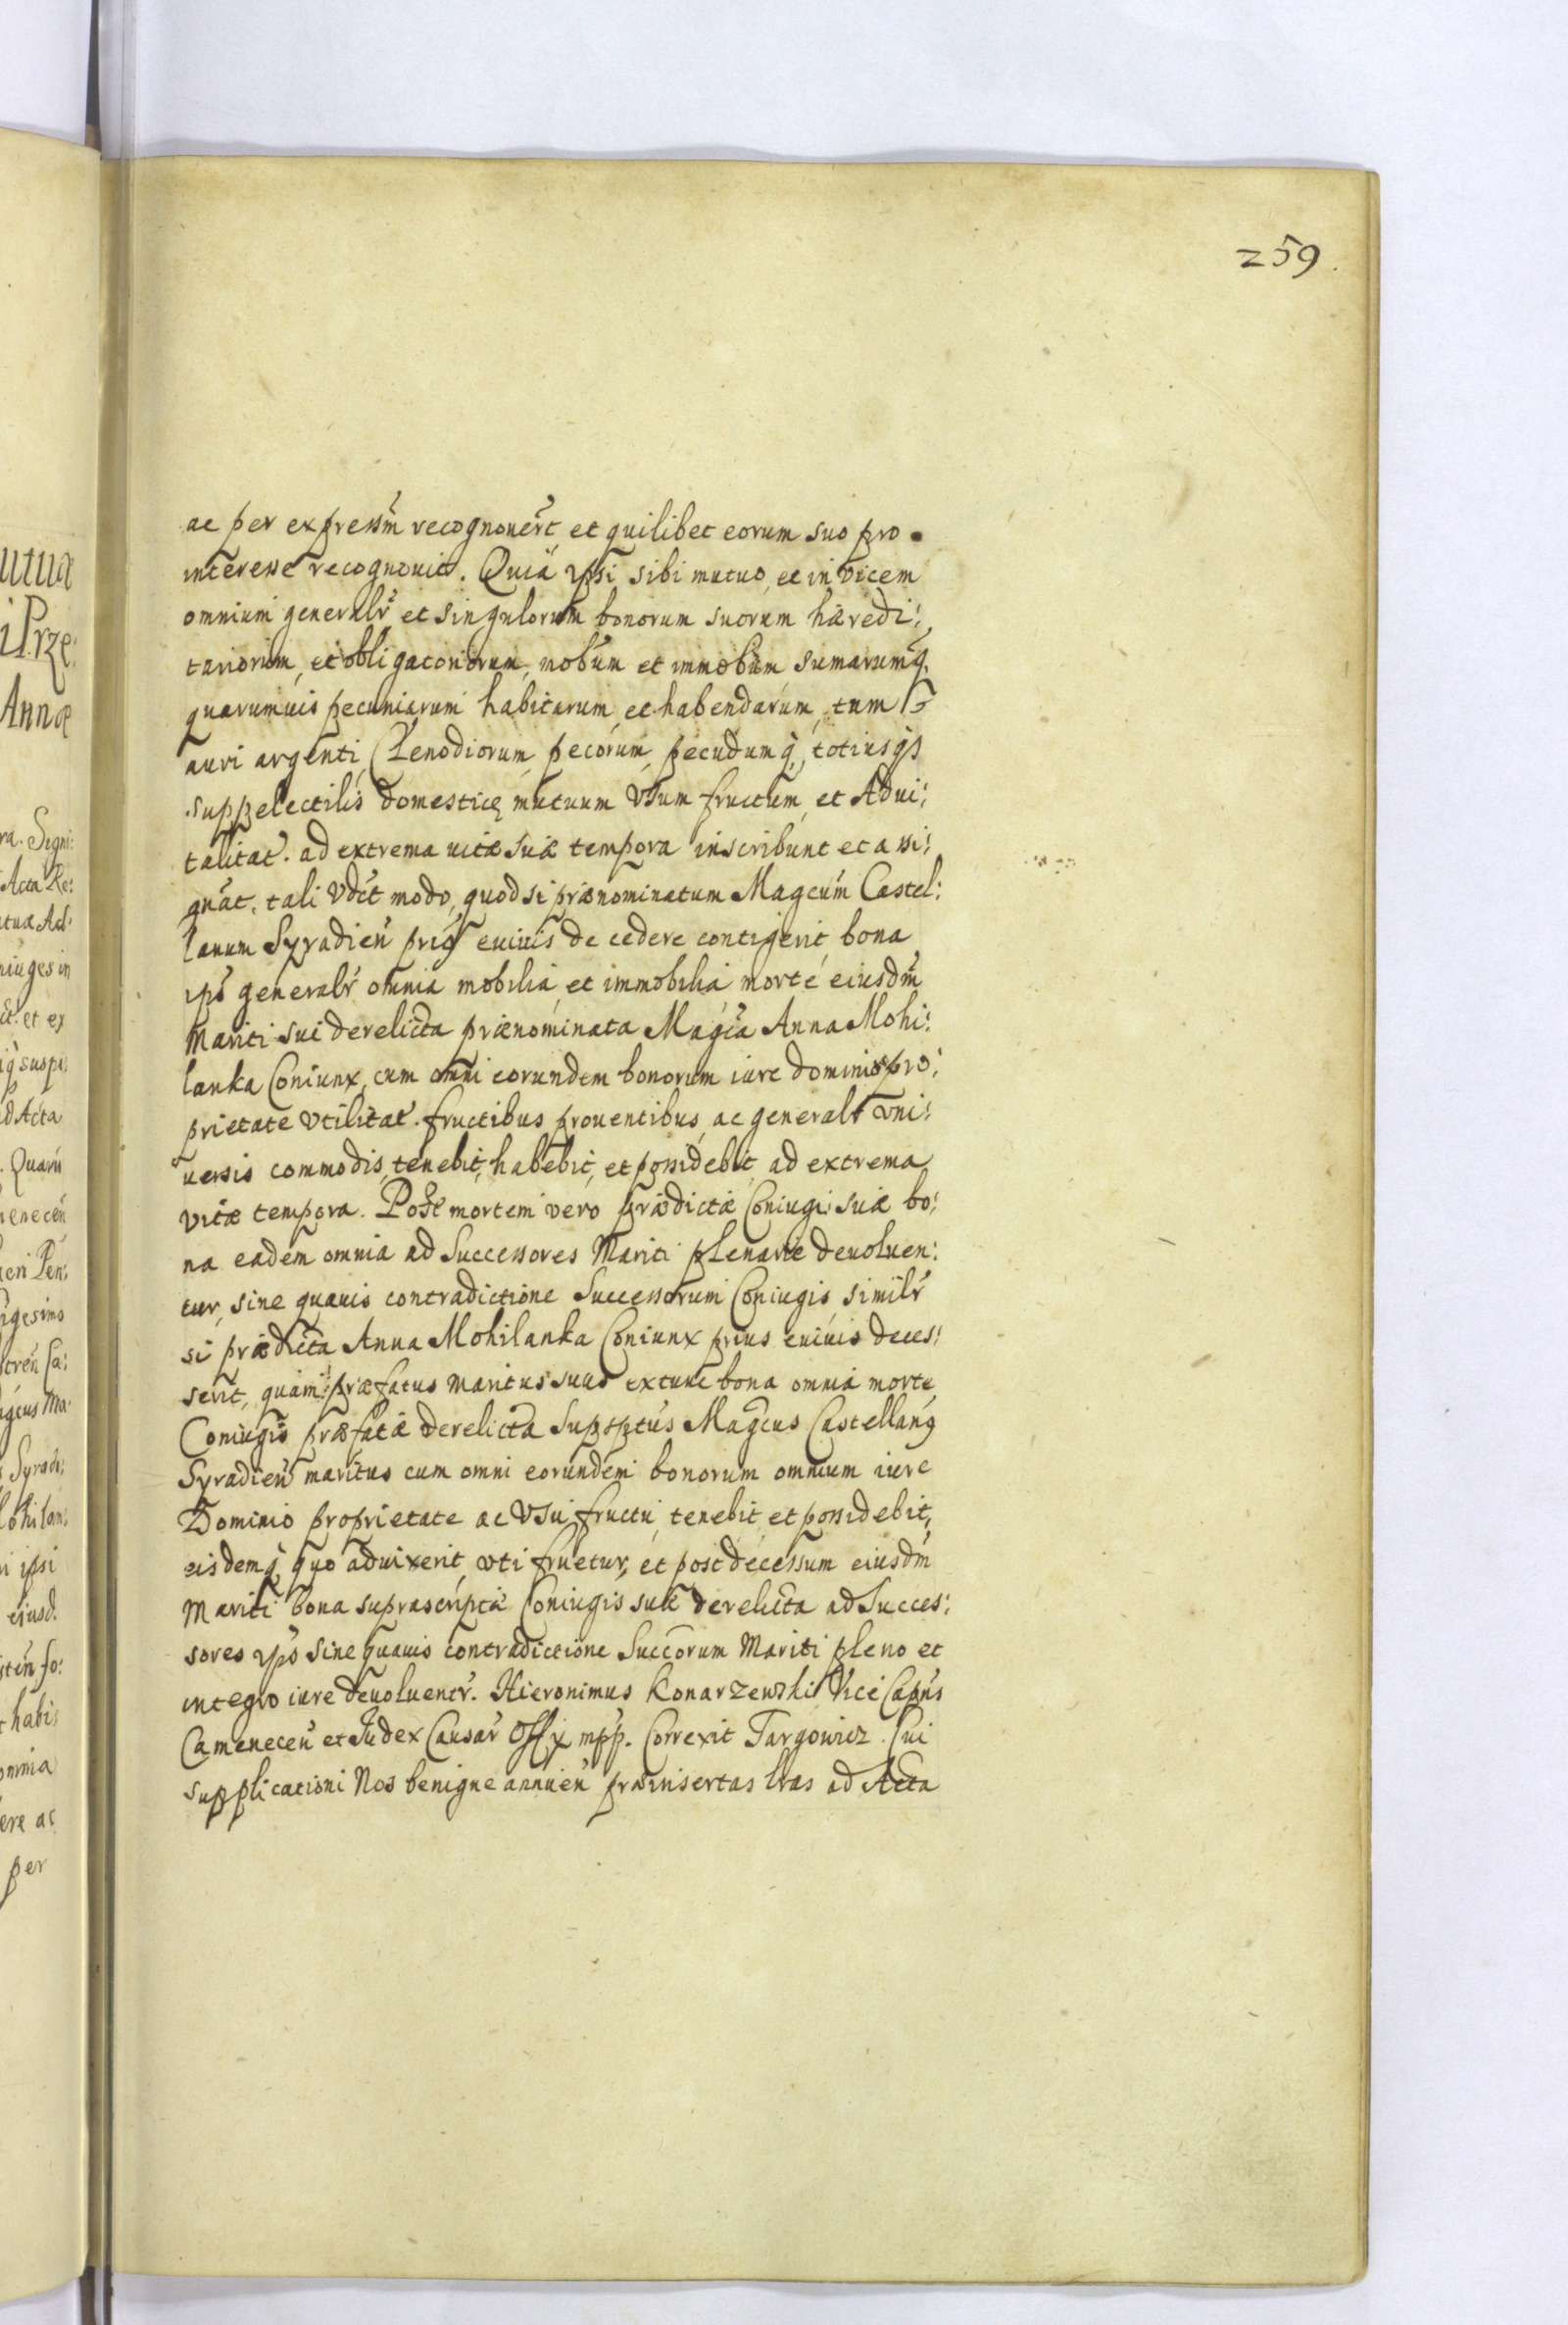 259.
ac per expressm̃ recognouer̃t et quilibet eorum suo pro
interesse recognouit. Quia ipsi sibi mutuo, et in vicem
omnium generalr̃ et singulorum bonorum suorum hæredi:
tariorum, et obligacoriorum, mobũm et immobũm, sumarumq̃.
quarumuis pecuniarum habitarum, et habendarum, tum
auri argenti, Clenodiorum, pecorum, pecudumq̃, totiusq̃
suppelectilis domesticę mutuum Vsum fructum, et Adui:
talitat̃. ad extrema uitæ suæ tempora inscribunt et assi:
gnãt. tali vdct̃ modo, quod si prænominatum Magcum̃ Castel:
lanum Syradień prius euiuis decedere contigerit, bona
ips̃ generalr̃ omnia mobilia, et immobilia morte eiusdm̃
Mariti sui derelicta prænominata Magc̃a Anna Mohi:
lanka Coniunx, cum omni eorundem bonorum iure dominio pro:
prietate vtilitat̃. fructibus prouentibus, ac generalr̃ vni:
uersis commodis, tenebit, habebit, et possidebit, ad extrema
vitæ tempora. Post mortem vero prædictæ Coniugis suæ bo:
na eadem omnia ad Successores Mariti plenarie deuoluen:
tur, sine quauis contradictione Successorum Coniugis, similr̃
si prædicta Anna Mohilanka Coniunx prius euiuis deces:
serit, quam præfatus maritus suus extunc bona omnia morte
Coniugis præfatæ derelicta Supsptus̃ Magcus̃ Castellanus
Syradień maritus cum omni eorundem bonorum omnium iure
Dominio proprietate ac Vsu fructu, tenebit et possidebit,
eisdemq̃ quo aduixerit, vti fruetur, et post decessum eiusdm̃
Mariti bona suprascripta Coniugis suæ derelicta ad Succes:
sores ips̃ sine quauis contradictione Succorum̃ Mariti pleno et
integro iure deuoluentr̃. Hieronimus Konarzewski Vice Capns̃
Camenecen̄ et Judex Causar̃ Offy mpp. Correxit Targowicz. Cui
supplicationi Nos benigne annuen̄ præinsertas lr̃as ad Acta